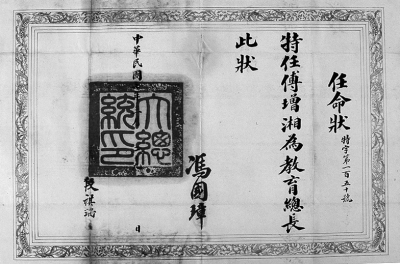 任命狀
特字第一百五十號
特任傅增湘為教育總長
此狀
馮國璋
大總統印
中華民國
段祺瑞
日